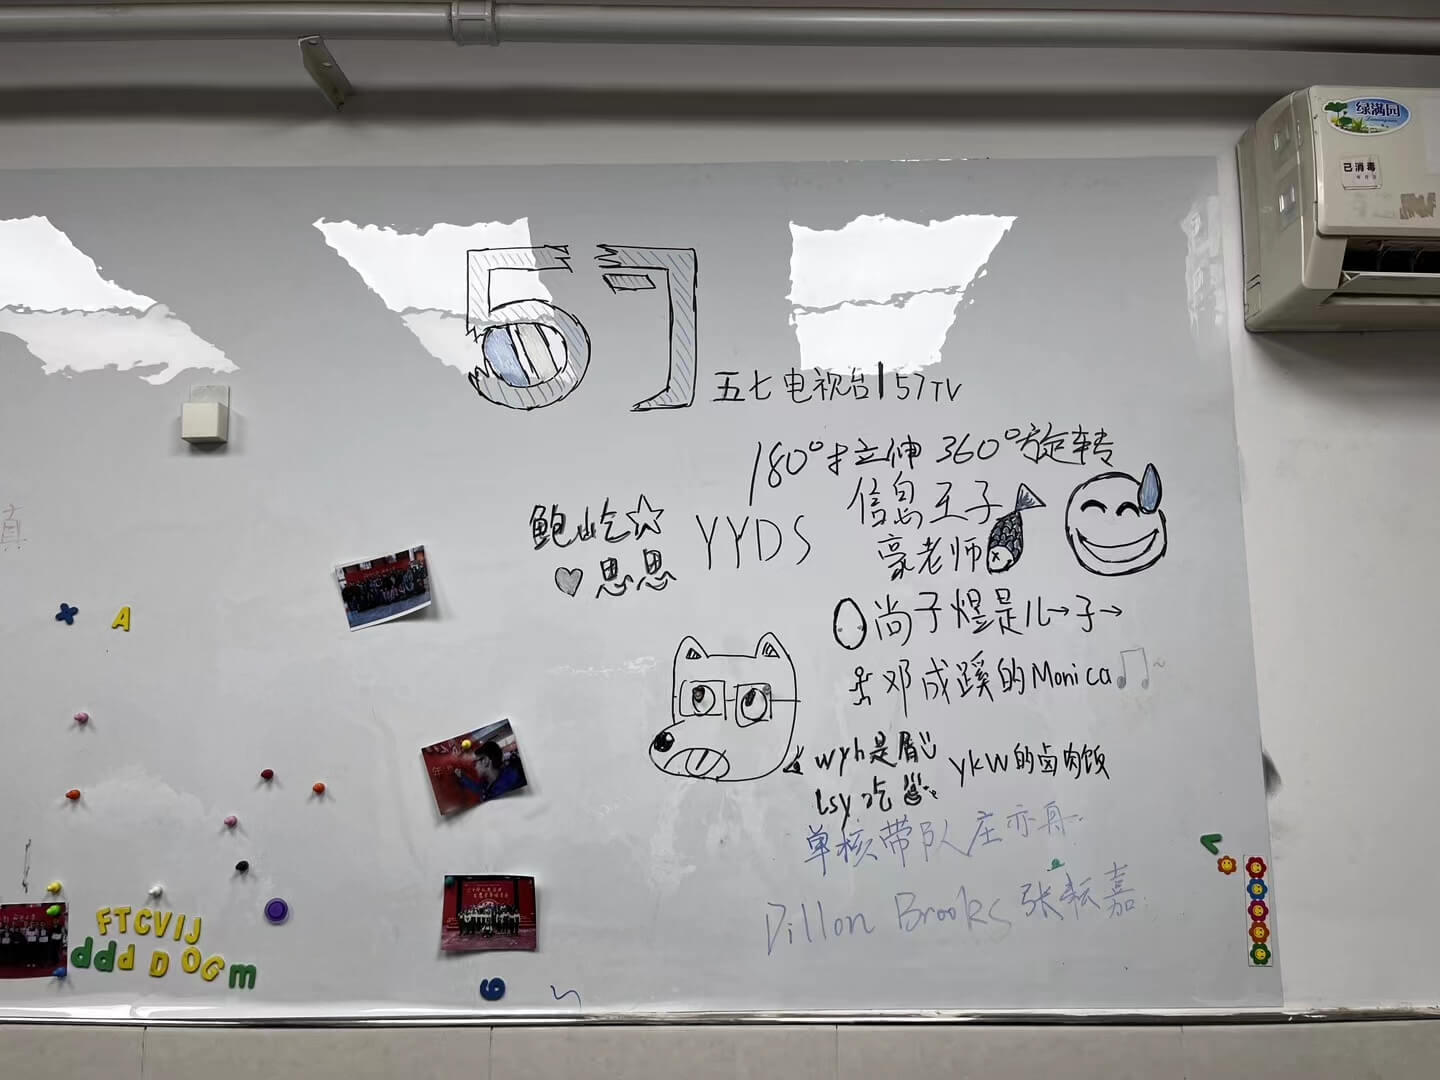 绿满园
已消毒
57
五七电视台|57TV
180°拉伸 360°旋转
鲍屹☆
♡思思
YYDS
信息王子
豪老师
尚子煜是儿→子→
邓成蹊的Monica
wyh是眉
lsy吃
ykw的卤肉饭
单核带队庄亦舟
Dillon Brooks 张耘嘉
真
A
FTCVIJ
dddDOGm
6